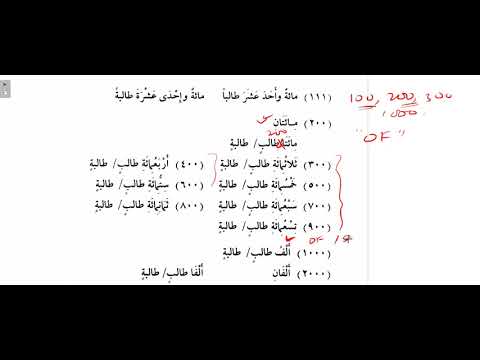 (١١١) مائةٌ وأَحَدَ عَشَرَ طالباً مائةٌ وإِحْدَى عَشْرَةَ طالبةً
100, 200, 300
1000
(٢٠٠) مِائَتَانِ
200
"OF"
مائتا طالبٍ/ طالبةٍ
(٣٠٠) ثَلاثُمِائَةِ طالبٍ/ طالبةٍ (٤٠٠) أَرْبَعُمِائَةِ طالبٍ/ طالبةٍ
(٥٠٠) خَمْسُمِائَةِ طالبٍ/ طالبةٍ (٦٠٠) سِتُّمِائَةِ طالبٍ/ طالبةٍ
(٧٠٠) سَبْعُمِائَةِ طالبٍ/ طالبةٍ (٨٠٠) ثَمَانِمِائَةِ طالبٍ/ طالبةٍ
(٩٠٠) تِسْعُمِائَةِ طالبٍ/ طالبةٍ
OF
(١٠٠٠) أَلْفُ طالبٍ/ طالبةٍ
(٢٠٠٠) أَلْفَانِ أَلْفَا طالبٍ/ طالبةٍ